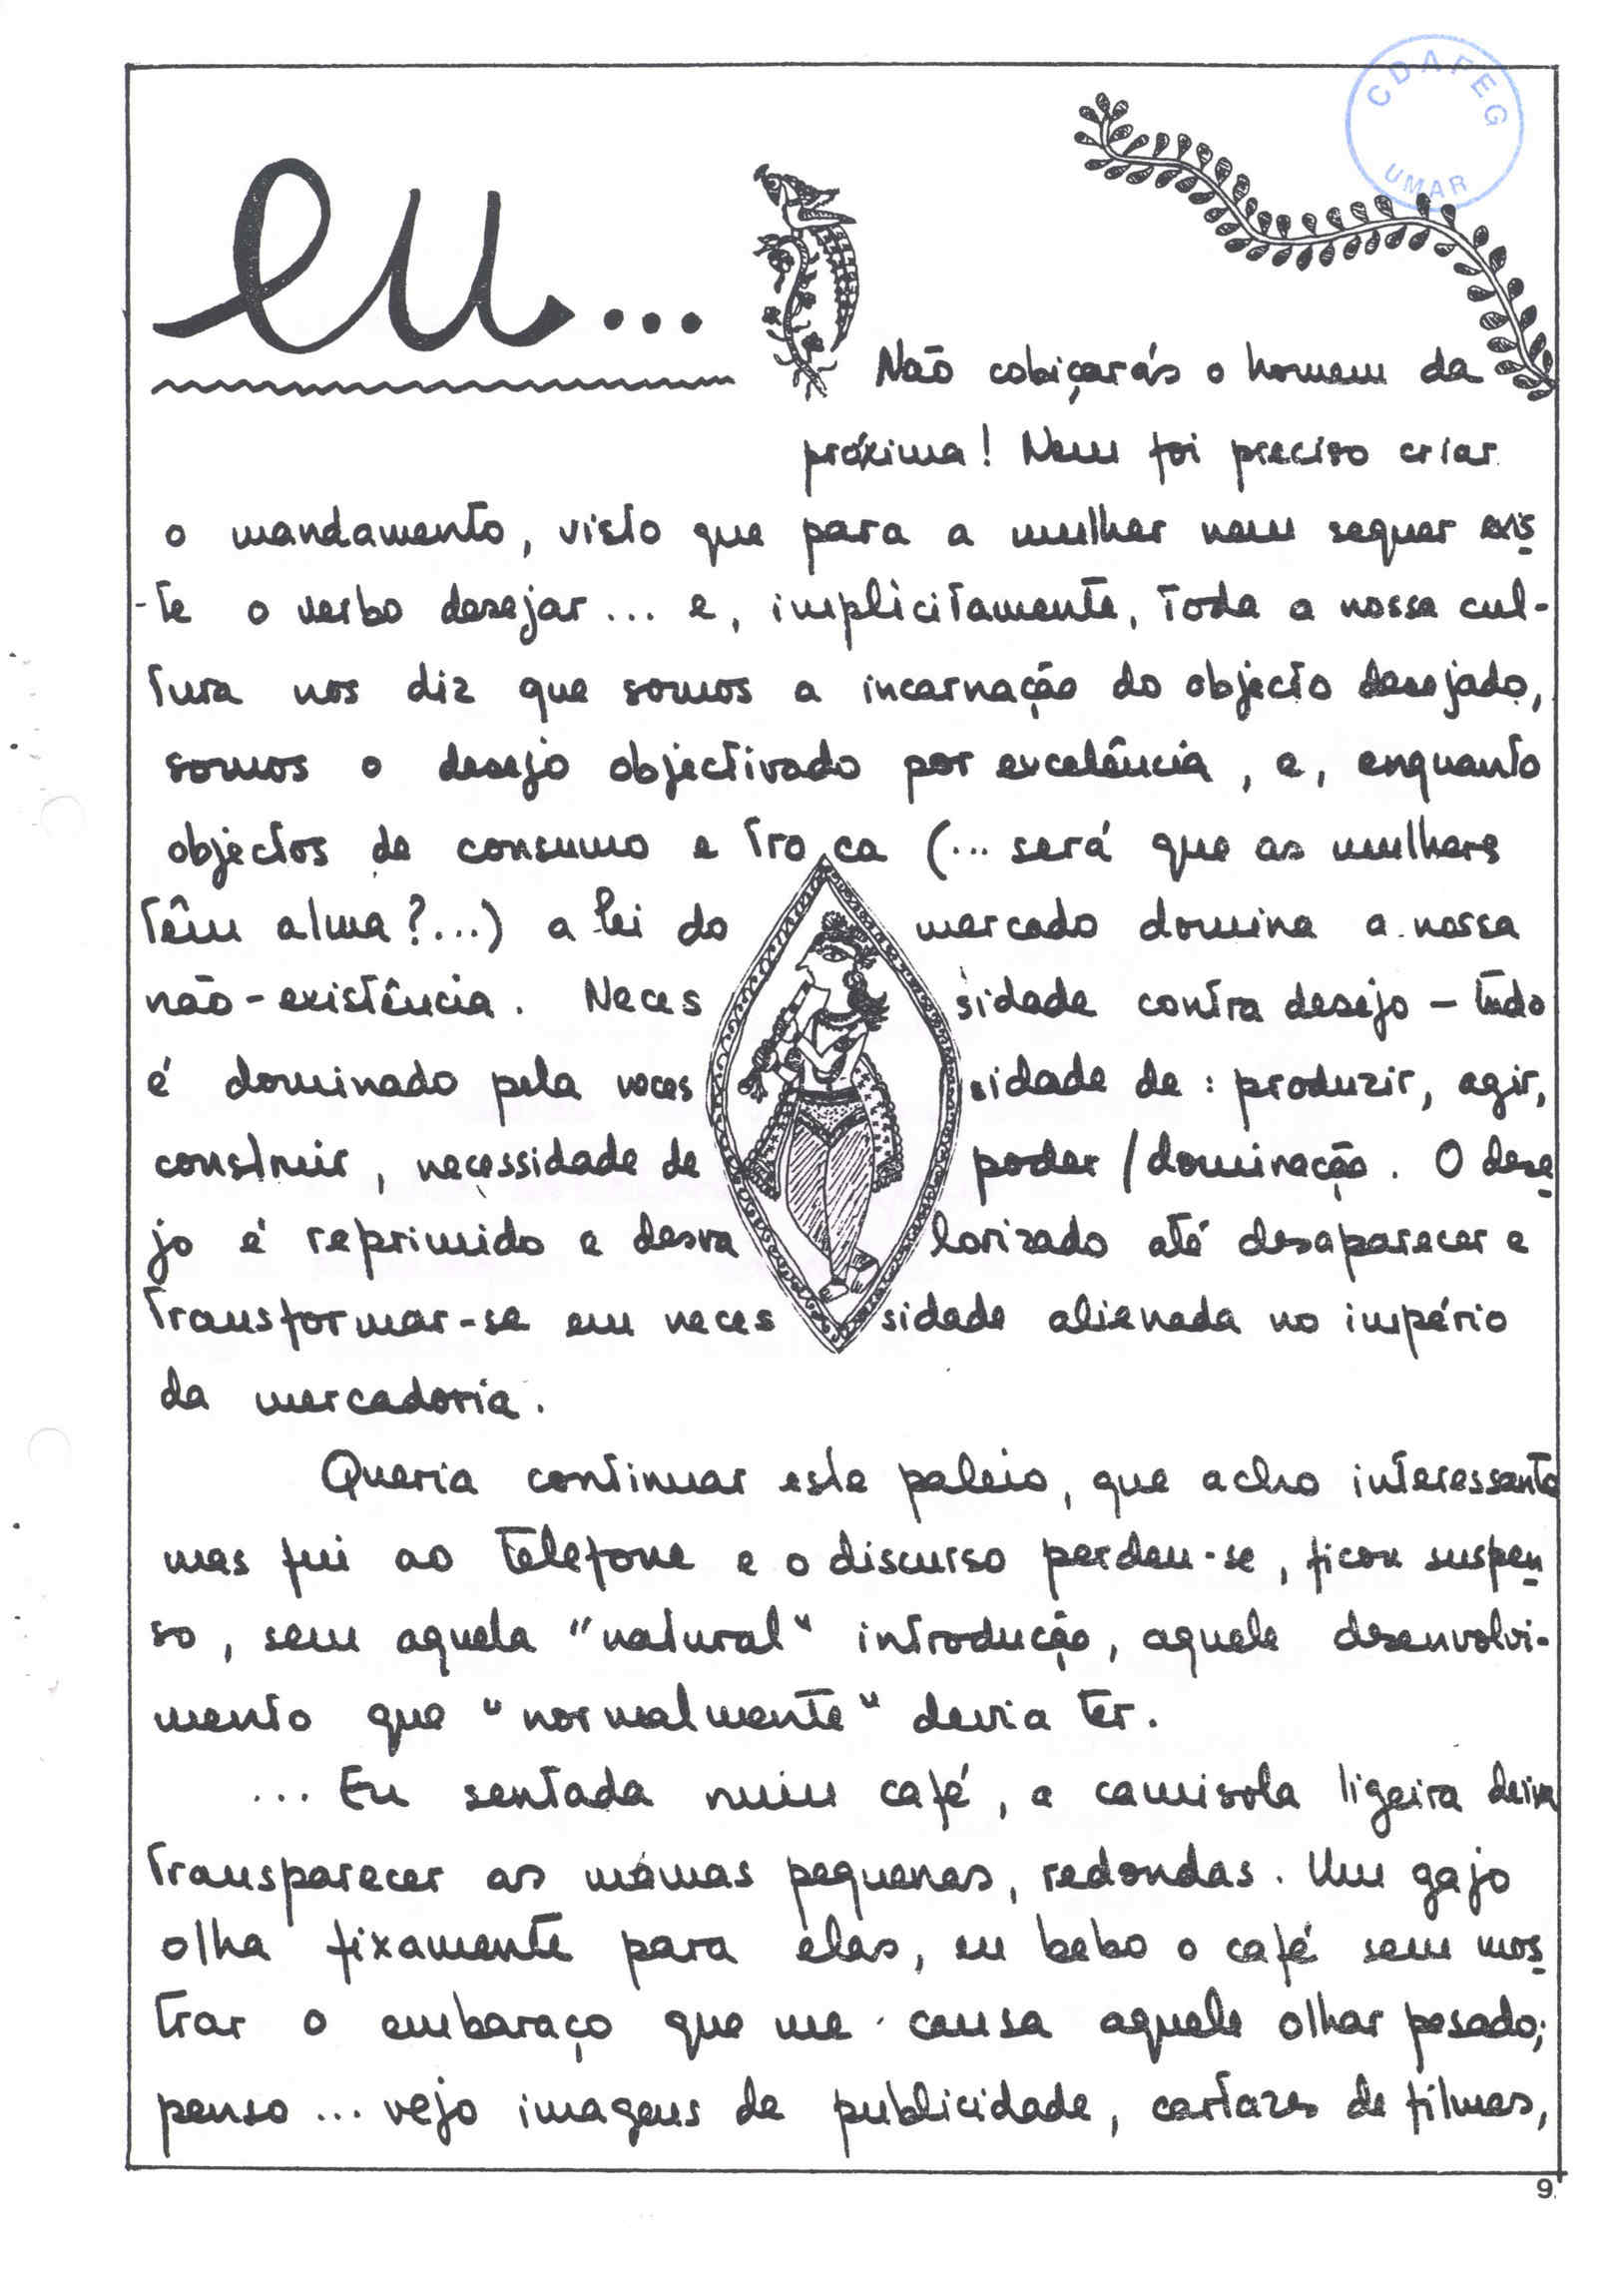 CDAFEG
UMAR
eu...
Não cobiçarás o homem da
próxima! Nem foi preciso criar
o mandamento, visto que para a mulher nem sequer exis
-te o verbo desejar... e, implicitamente, toda a nossa cul-
tura nos diz que somos a incarnação do objecto desejado,
somos o desejo objectivado por excelência, e, enquanto
objectos de consumo e troca (... será que as mulheres
têm alma?...) a lei do mercado domina a nossa
não-existência. Necessidade contra desejo – tudo
é dominado pela necessidade de: produzir, agir,
construir, necessidade de poder/dominação. O dese
jo é reprimido e desvalorizado até desaparecer e
transformar-se em necessidade alienada no império
da mercadoria.
Queria continuar este paleio, que acho interessante
mas fui ao telefone e o discurso perdeu-se, ficou suspen
so, sem aquela "natural" introdução, aquele desenvolvi-
mento que "normalmente" devia ter.
... Eu sentada num café, a camisola ligeira deixa
transparecer as mamas pequenas, redondas. Um gajo
olha fixamente para elas, eu bebo o café sem mos
trar o embaraço que me causa aquele olhar pesado;
penso... vejo imagens de publicidade, cartazes de filmes,
9